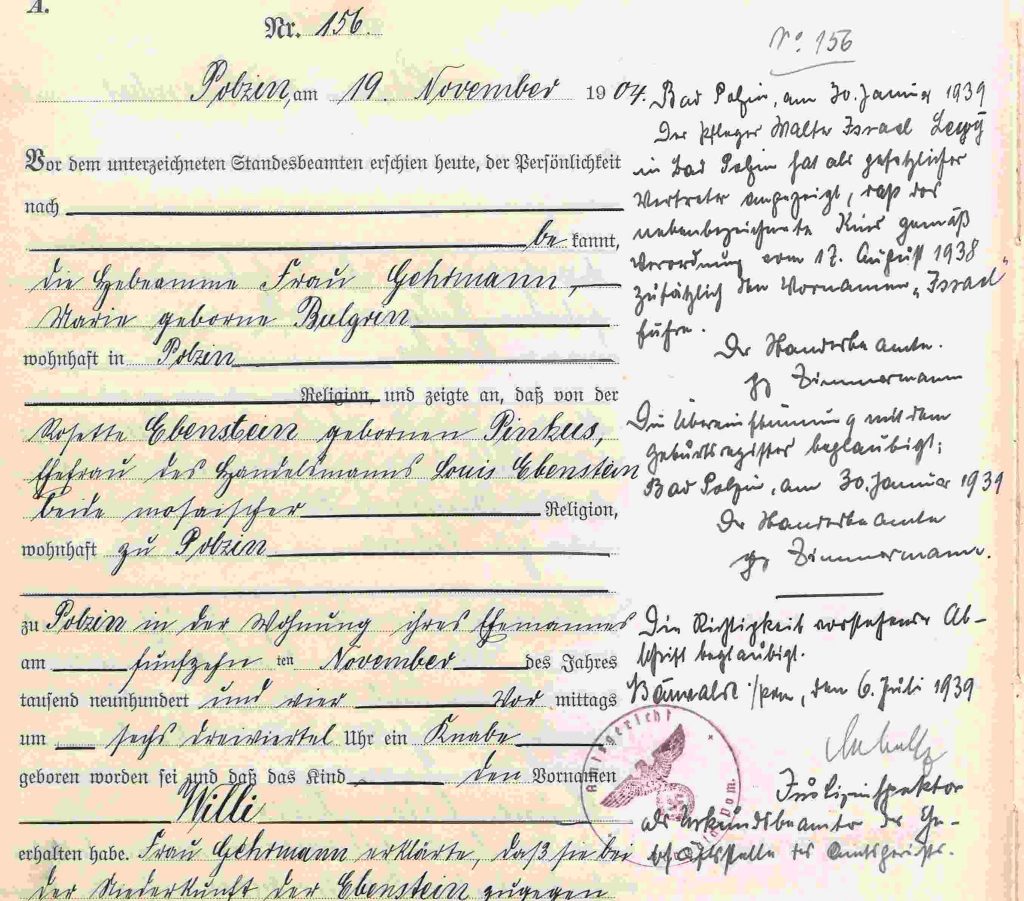 A.
Nr. 156.
Polzin, am 19. November 1904.
Vor dem unterzeichneten Standesbeamten erschien heute, der Persönlichkeit
nach
be kannt,
die Hebeamme Frau Gehrmann,
Marie geborne Bulgrin
wohnhaft in Polzin
Religion, und zeigte an, daß von der
Rosette Ebenstein gebornen Pinkus,
Ehefrau des Handelsmanns Louis Ebenstein
beide mosaischer Religion,
wohnhaft zu Polzin
zu Polzin in der Wohnung ihres Ehemannes
am fünfzehn ten November des Jahres
tausend neunhundert und vier Vor mittags
um sechs dreiviertel Uhr ein Knabe
geboren worden sei und daß das Kind den Vornamen
Willi
erhalten habe. Frau Gehrmann erklärte, daß sie bei
der Niederkunft der Ebenstein zugegen
No 156
Bad Polzin, am 30. Januar 1939
Der Pfleger Walter Israel Lewy
in Bad Polzin hat als gesetzlicher
Vertreter angezeigt, daß das
nebenbezeichnete Kind gemäß
Verordnung vom 17. August 1938
zusätzlich den Vornamen „Israel“
führe.
Der Standesbeamte.
gez Zimmermann
Die Übereinstimmung mit dem
Geburtsregister beglaubigt:
Bad Polzin, am 30. Januar 1939
Der Standesbeamte
gez Zimmermann.
Die Richtigkeit vorstehender Ab-
schrift beglaubigt.
Bärwalde /Pom, den 6. Juli 1939
Justizinspektor
als Urkundsbeamter der Ge-
schäftsstelle des Amtsgerichts.
Amtsgericht
Pom.